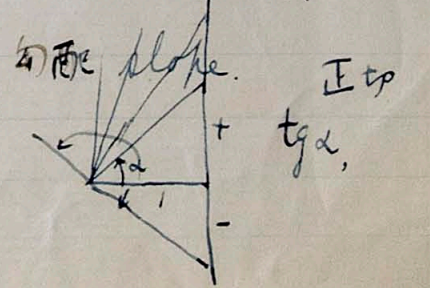 勾配 slope.
正切
tgα,
+
α
1
-